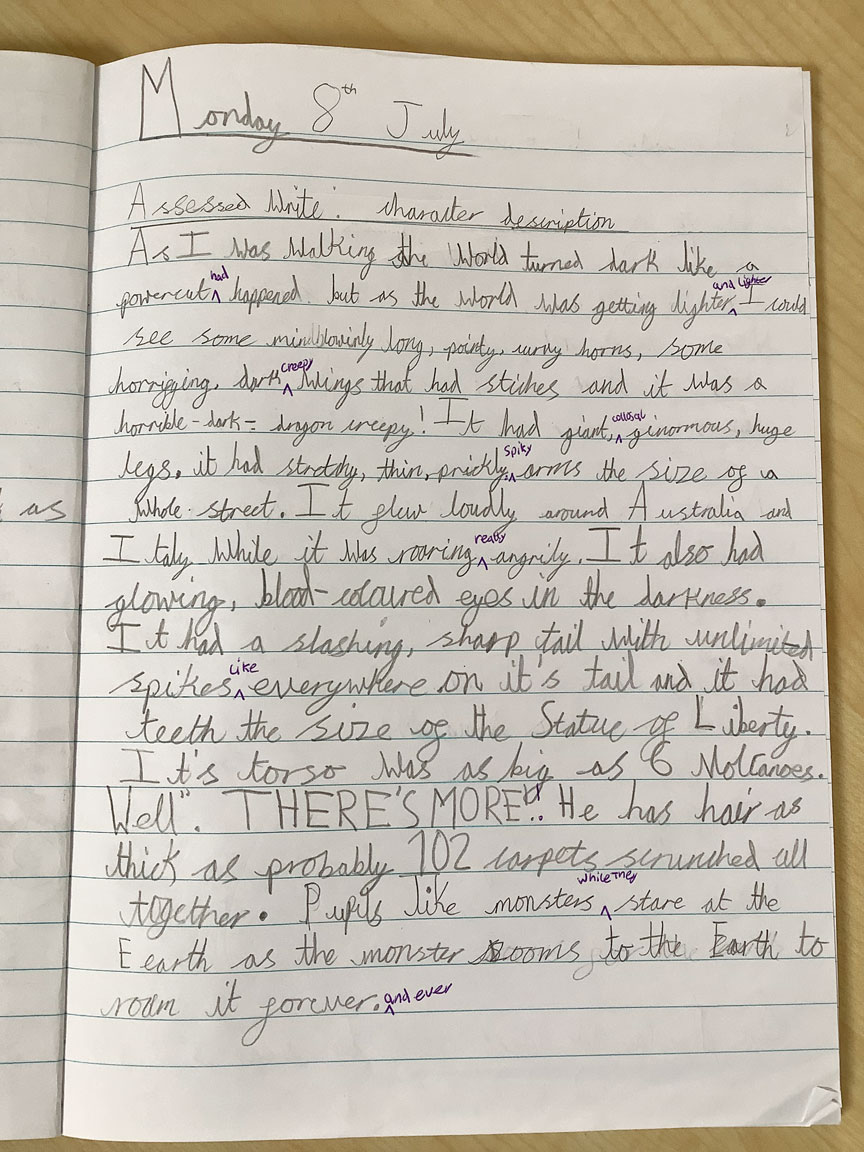 Monday 8th July
Assessed Write: character description
As I was walking the world turned dark like a
powercut had happened. but as the world was getting lighter and lighter I could
see some mindblowinly long, pointy, curvy horns, some
horrigging, dark creepy wings that had stiches and it was a
horrible-dark- dragon creepy! It had giant, collosal ginormous, huge
legs. it had stretchy, thin, prickly, spiky arms the size of a
whole street. It flew loudly around Australia and
Italy while it was roaring really angrily. It also had
as
glowing, blood-coloured eyes in the darkness.
It had a slashing, sharp tail with unlimited
spikes like everywhere on it's tail and it had
teeth the size of the Statue of Liberty.
It's torso was as big as 6 Volcanoes.
Well". THERE'S MORE!! He has hair as
thick as probably 102 carpets scrunched all
together. Pupils like monsters while they stare at the
Eearth as the monster zooms to the Earth to
roam it forever. and ever